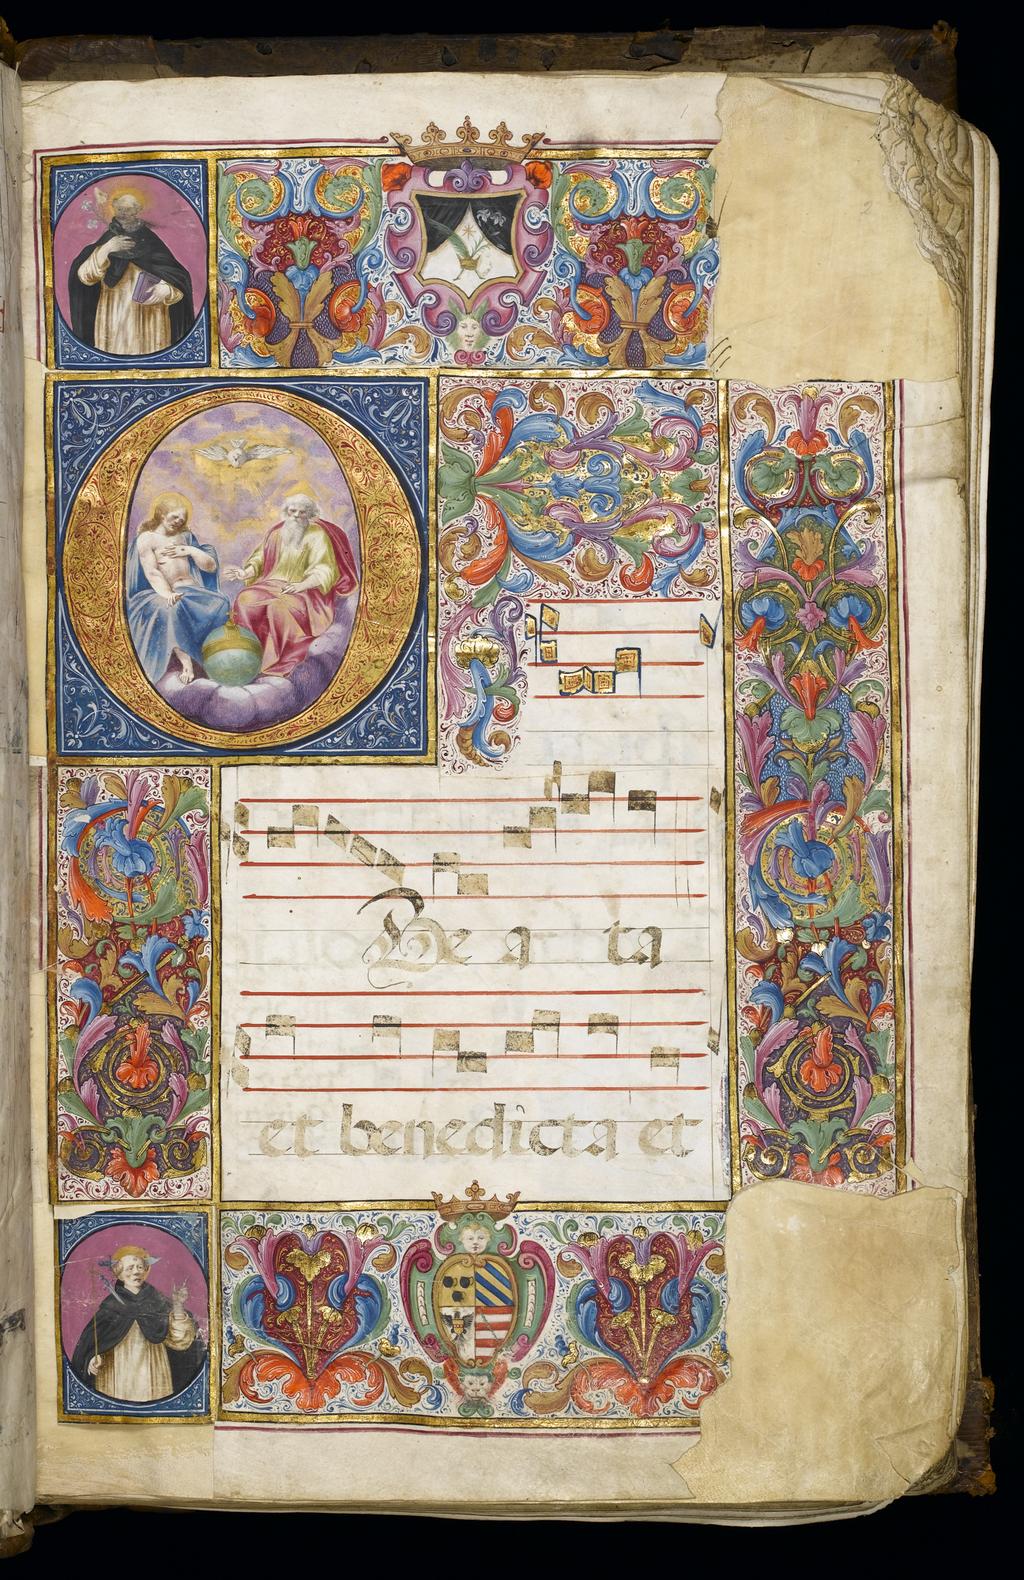 O
Be a ta
et benedicta et